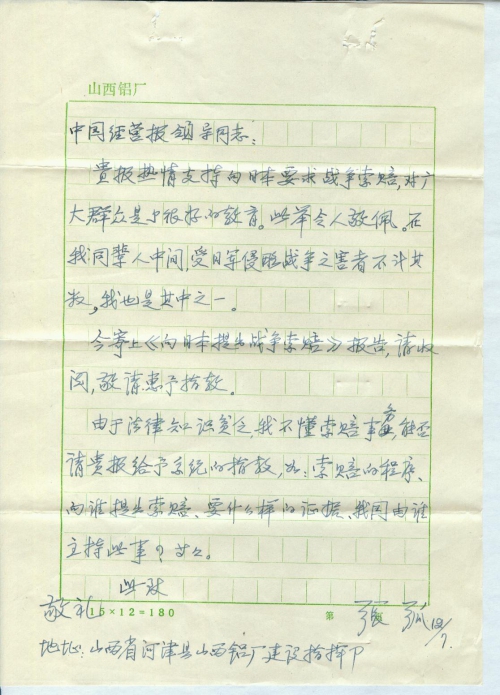 山西铝厂
中国经营报领导同志：
贵报热情支持向日本要求战争索赔，对广
大群众是个很好的教育。此举令人敬佩。在
我同辈人中间，受日军侵略战争之害者不计其
数，我也是其中之一。
今寄上《向日本提出战争索赔》报告，请收
阅，敬请惠予指教。
由于法律知识贫乏，我不懂索赔事务，能否
请贵报给予系统的指教，如：索赔的程序、
向谁提出索赔、要什么样的证据、我国由谁
主持此事？等等。
此致
敬礼
15×12=180 第 张
地址：山西省河津县山西铝厂建设指挥